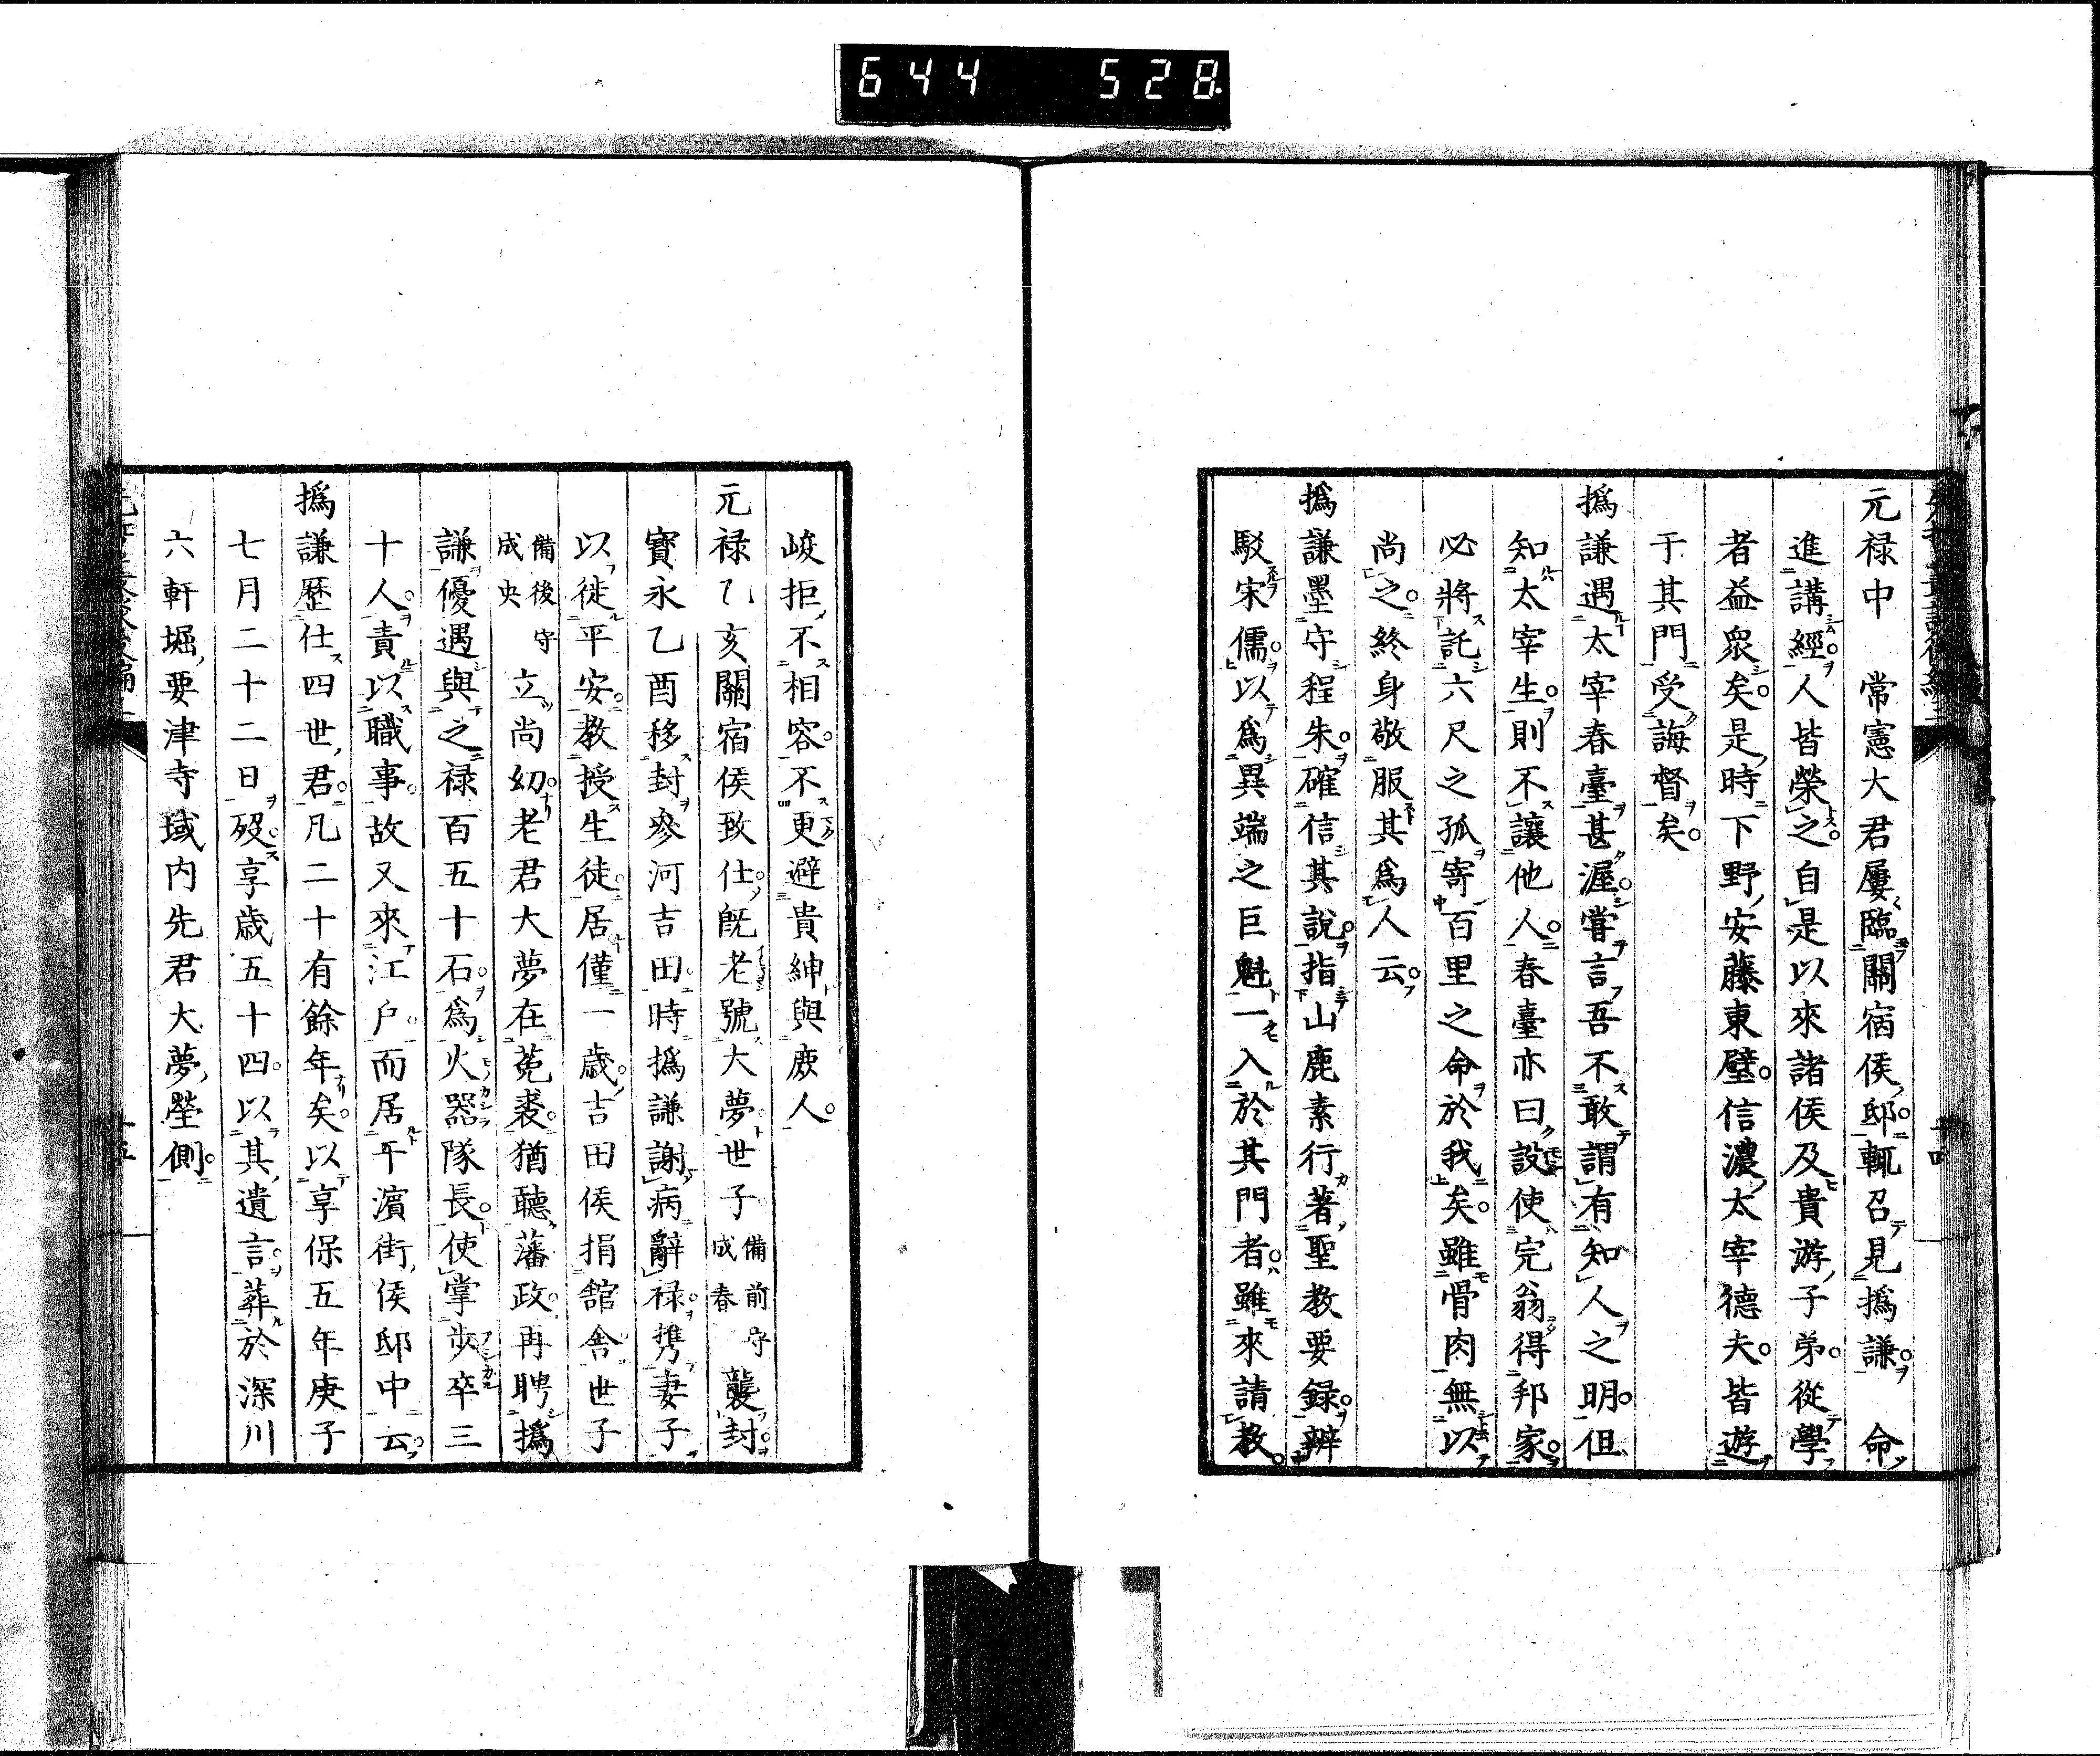 644 528
元禄中 常憲大君屢臨關宿侯邸輒召見撝謙 命
進講經人皆榮之自是以來諸侯及貴游子弟從學
者益衆矣是時下野安藤東壁信濃太宰德夫皆遊
于其門受誨督矣
撝謙遇太宰春臺甚渥嘗言吾不敢謂有知人之明但
知太宰生則不讓他人春臺亦曰設使完翁得邦家
必將託六尺之孤寄百里之命於我矣雖骨肉無以
尚之終身敬服其爲人云
撝謙墨守程朱確信其說指山鹿素行著聖教要録辨
駁宋儒以爲異端之巨魁一入於其門者雖來請教
峻拒不相容不更避貴紳與庶人
元禄乙亥關宿侯致仕旣老號大夢世子備前守成春襲封
寳永乙酉移封參河吉田時撝謙謝病辭禄携妻子
以徙平安教授生徒居僅一歳吉田侯捐舘舎世子
備後守成央立尚幼老君大夢在菟裘猶聽藩政再聘撝
謙優遇與之禄百五十石爲火器隊長使掌步卒三
十人責以職事故又來江戸而居于濱街侯邸中云
撝謙歴仕四世君凡二十有餘年矣以享保五年庚子
七月二十二日歿享歳五十四以其遺言葬於深川
六軒堀要津寺域内先君大夢塋側